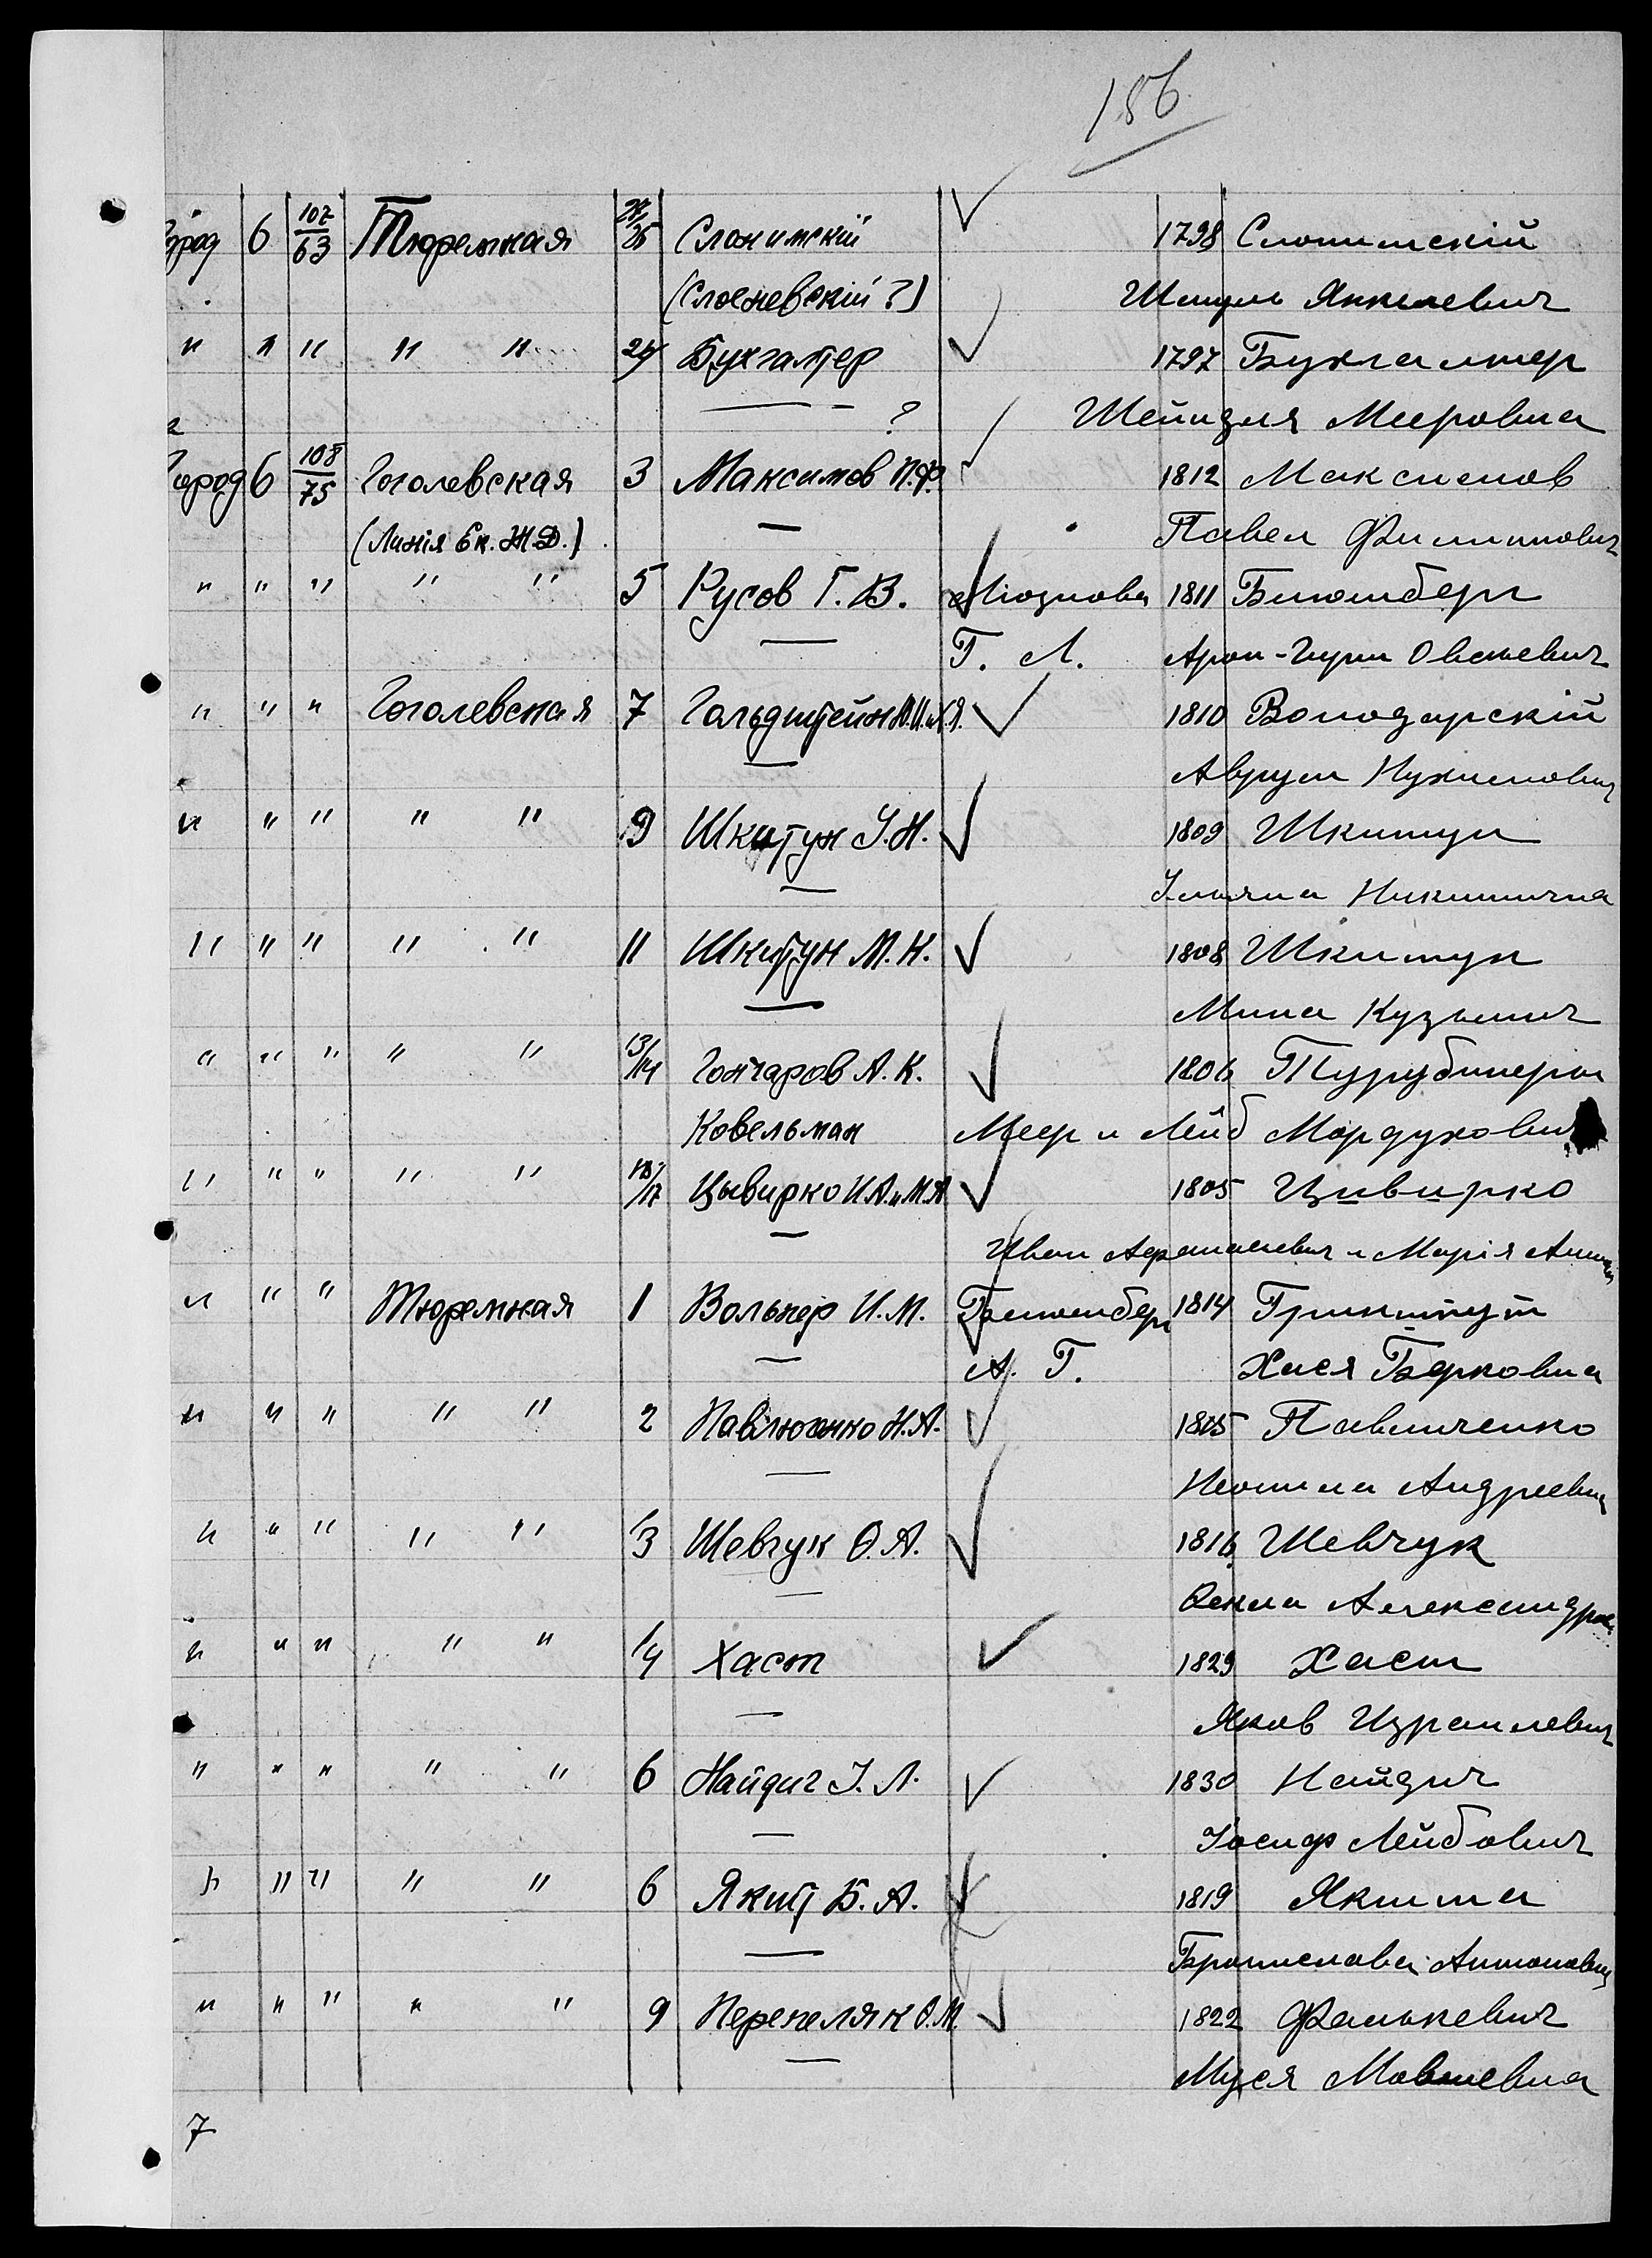 186
Город 6 107/63 Тюремная 27/25 Слонимскій 1798 Слонимскій
(Слоневскій?) Шмуль Янкелевич
" " " " " 24 Бухгалтер 1797 Бухгалтер
? Шейндля Мееровна
Город 6 108/75 Гоголевская 3 Максимов П.Ф. 1812 Максимов
(Линія Ек. Ж.Д.) Павел Филиппович
" " " " " 5 Русов Г. В. 1811 Блюмберг
Г. Л. Арон-Герш Овсеевич
" " " Гоголевская 7 Гольдштейн 1810 Володарскій
Аврум Нухимович
" " " " " 9 Шкитун У.Н. 1809 Шкитун
Ульяна Никитична
" " " " " 11 Шкитун М. К. 1808 Шкитун
Мина Кузьмич
" " " " " 13/14 Гончаров А. К. 1806 Турубинеры
Ковельман Меер и Лейб Мордухович
" " " " " 18/17 Цывирко И.А. и М.А. 1805 Цивирко
Иван Афанасиевич и Марія
" " " Тюремная 1 Вольнер И.М. Блюмберг 1814 Гринштут
А. Г. Хася Берковна
" " " " " 2 Павлюченко Н.А. 1815 Павличенко
Неонила Андреевна
" " " " " 1/3 Шевчук Ѳ. А. 1816 Шевчук
Ѳекла Александров
" " " " " 1/4 Хаст 1829 Хаст
Яков Израилевич
" " " " " 6 Найдич І. Л. 1830 Найдич
Іосиф Лейбович
" " " " " 6 Якит Б. А. 1819 Якита
Бронислава Антоновна
" " " " " 9 Перепеляк О.М. 1822 Фалькевич
Муся Мовшевна
7